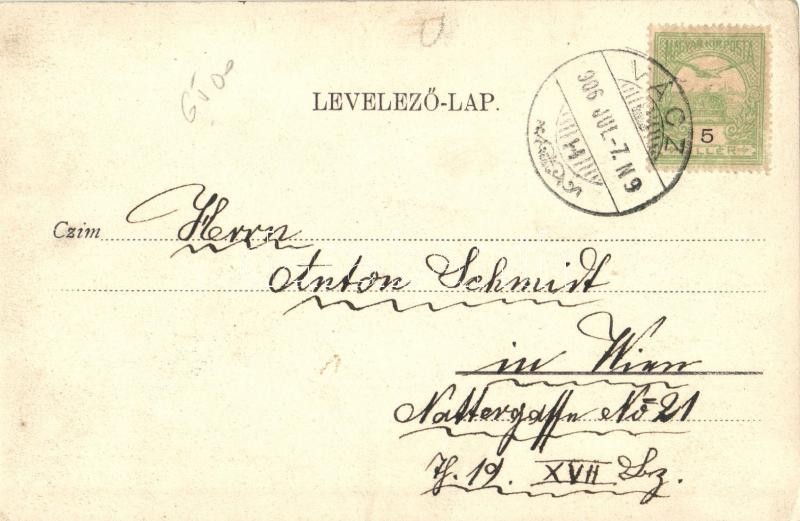 LEVELEZŐ-LAP.
MAGYAR KIR. POSTA
5
VÁCZ
906 JUL.-7. N9
Czim
Herrn
Anton Schmidt
in Wien
Nattergasse No 21
Th. 19. XVII Bz.